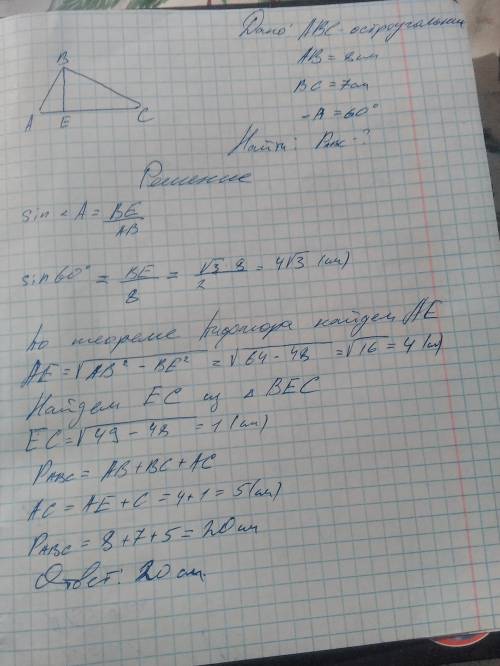 Дано: ABC - остроугольный
AB = 8 см
BC = 7 см
∠A = 60°
Найти: P ABC - ?
B
A E C
Решение
sin ∠ A = BE/AB
sin 60° = BE/8 = √3·8/2 = 4√3 (см)
По теореме Пифагора найдем AE
AE = √AB² - BE² = √64 - 48 = √16 = 4 (см)
Найдем EC из △ BEC
EC = √49 - 48 = 1 (см)
P ABC = AB + BC + AC
AC = AE + C = 4 + 1 = 5 (см)
P ABC = 8 + 7 + 5 = 20 см
Ответ: 20 см.